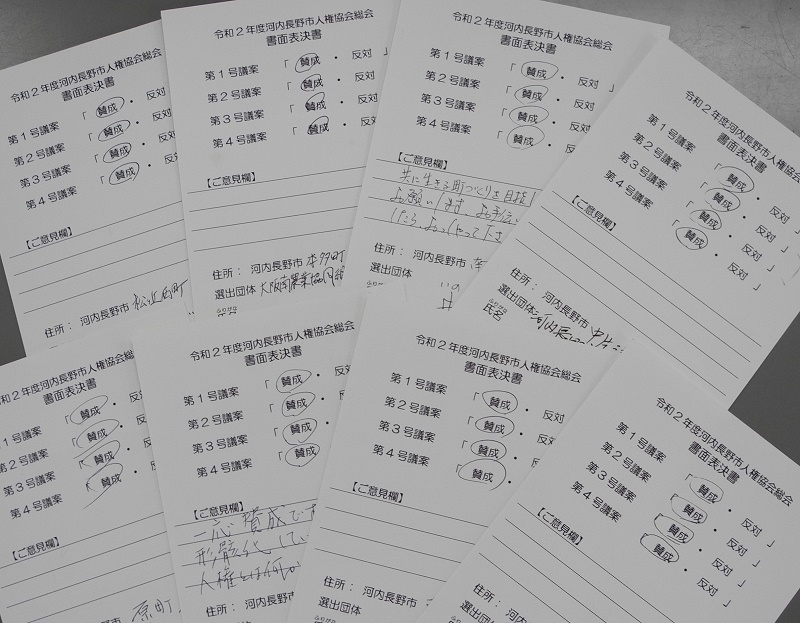 令和2年度河内長野市人権協会総会
書面表決書
第1号議案 「 賛成 ・ 反対
第2号議案 「 賛成 ・ 反対
第3号議案 「 賛成 ・ 反
第4号議案 「 賛成 ・
【ご意見欄】
住所： 河内長野市
令和2年度河内長野市人権協会総会
書面表決書
第1号議案 「 賛成 ・ 反対 」
第2号議案 「 賛成 ・ 反対
第3号議案 「 賛成 ・ 反対
第4号議案 「 賛成 ・ 反対
【ご意見欄】
住所： 河内長野市 本多町
選出団体 大阪南農業協同組
令和2年度河内長野市人権協会総会
書面表決書
第1号議案 「 賛成 ・ 反対 」
第2号議案 「 賛成 ・ 反対
第3号議案 「 賛成 ・ 反対
第4号議案 「 賛成 ・ 反対
【ご意見欄】
共に生きる町づくりを目指し
お願いします。お手伝い
住所： 河内長野市
選出団体
令和2年度河内長野市人権協会総会
書面表決書
第1号議案 「 賛成 ・ 反対 」
第2号議案 「 賛成 ・ 反対 」
第3号議案 「 賛成 ・ 反対 」
第4号議案 「 賛成 ・ 反対 」
【ご意見欄】
住所： 河内長野市
選出団体
氏名
令和2年度河内長野市人権協会総会
書面表決書
第1号議案 「 賛成 ・ 反対
第2号議案 「 賛成 ・ 反対
第3号議案 「 賛成 ・ 反
第4号議案 「 賛成 ・
【ご意見欄】
原町
令和2年度河内長野市人権協会総会
書面表決書
第1号議案 「 賛成 ・ 反対
第2号議案 「 賛成 ・ 反対
第3号議案 「 賛成 ・ 反
第4号議案 「 賛成 ・
【ご意見欄】
一応賛成です
形骸化してい
人権とは何か
令和2年度河内長野市人権協会総会
書面表決書
第1号議案 「 賛成 ・ 反対
第2号議案 「 賛成 ・ 反対
第3号議案 「 賛成 ・ 反対
第4号議案 「 賛成 ・ 反
【ご意見欄】
住所： 河内長野市
選出団体
令和2年度河内長野市人権協会総会
書面表決書
第1号議案 「 賛成 ・ 反対 」
第2号議案 「 賛成 ・ 反対 」
第3号議案 「 賛成 ・ 反対 」
第4号議案 「 賛成 ・ 反対 」
【ご意見欄】
住所： 河内長野市